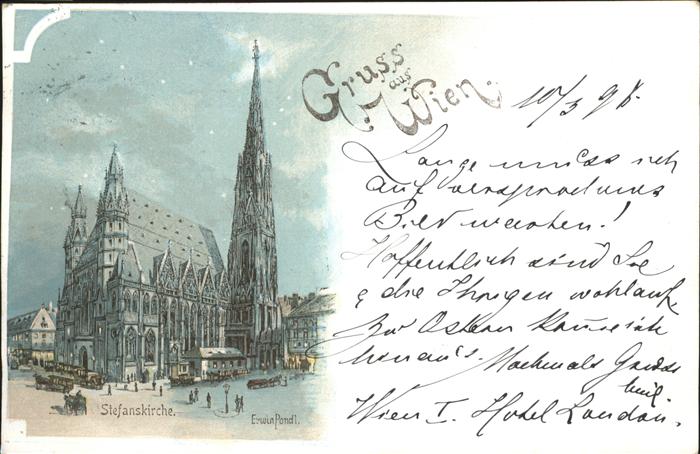 Gruss
aus
Wien.
10/3 98.
Lange muss ich
auf versprochenes
Bild warten!
Hoffentlich sind Sie
& die Ihrigen wohlauf.
Zu Ostern komme ich
Nochmals Gruss
Emil
Wien I. Hotel London.
Stefanskirche.
Erwin Pendl.